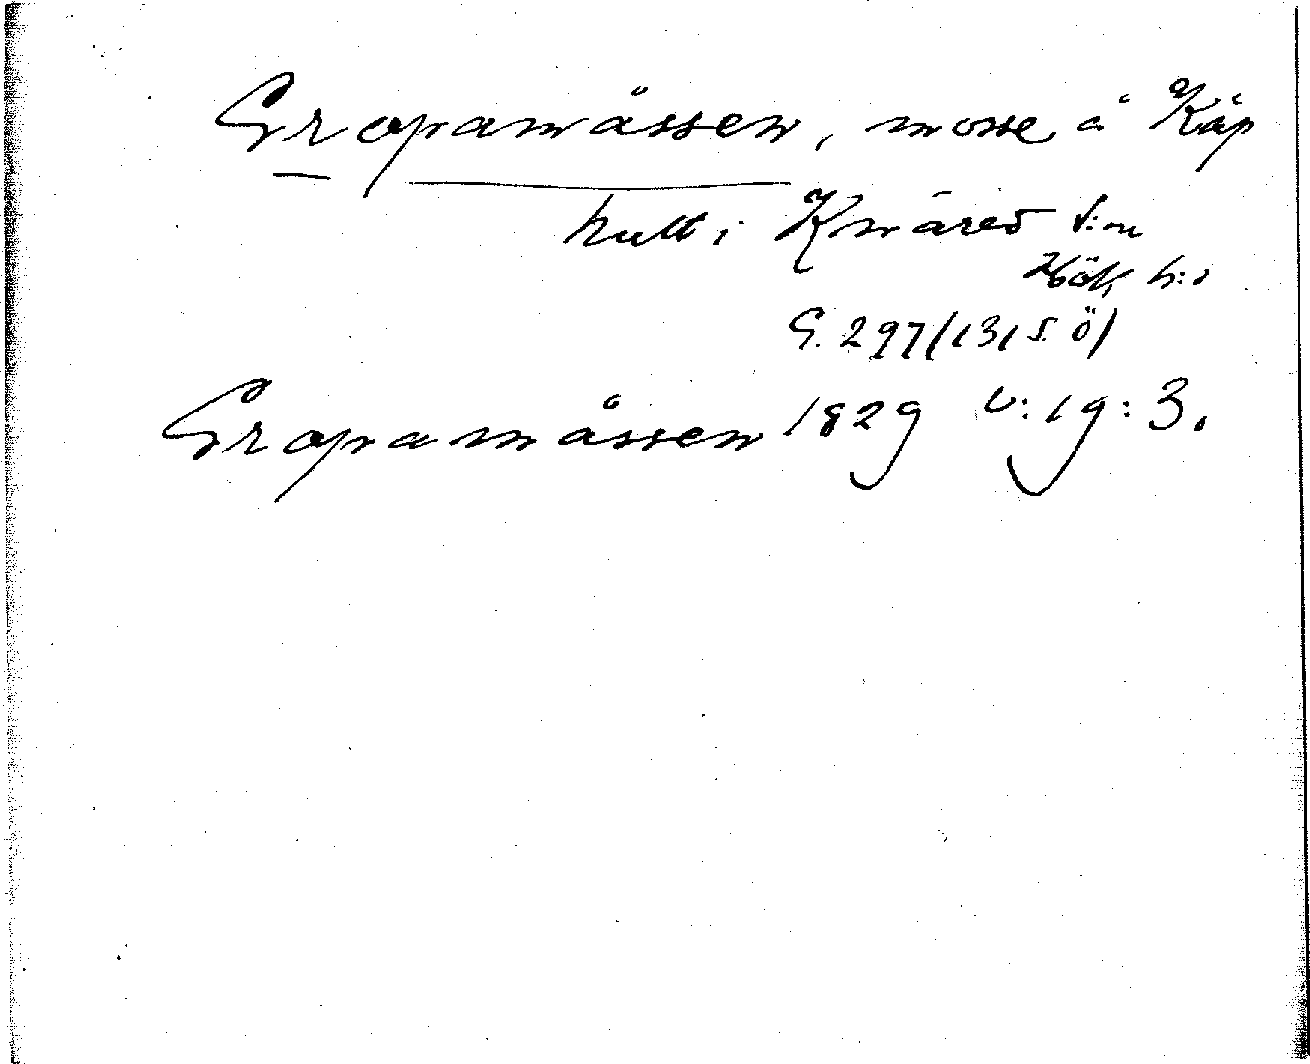 Gropamåssen, mosse å Kåp
hult i Knäred s:n
Hök h:d
G. 297/1315. ö/
Gropamåssen 1829 v:19:3.